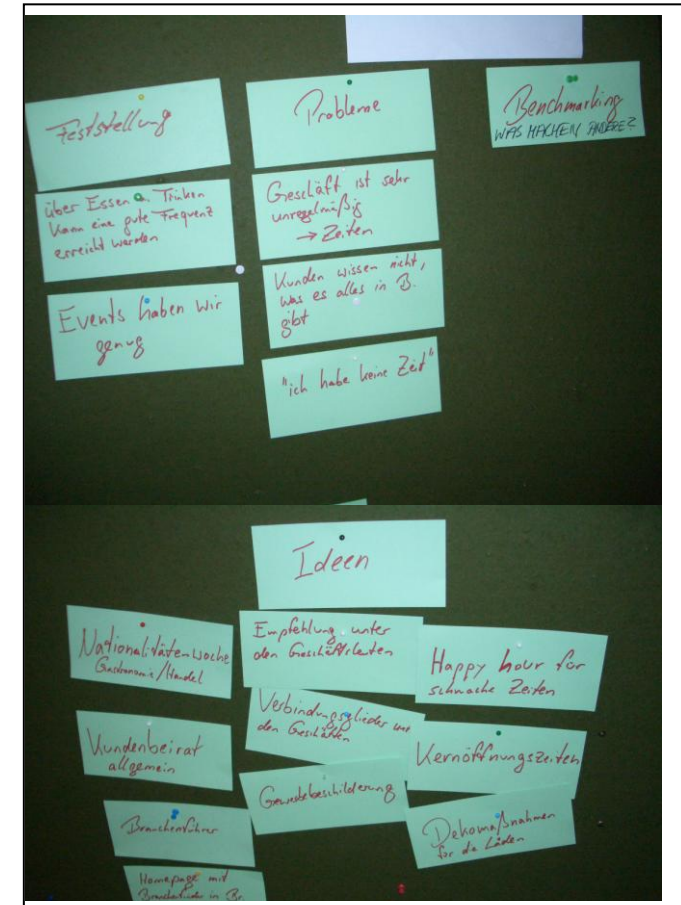 Feststellung
über Essen & Trinken
kann eine gute Frequenz
erreicht werden
Events haben wir
genug
Probleme
Geschäft ist sehr
unregelmäßig
→ Zeiten
Kunden wissen nicht,
was es alles in B.
gibt
"ich habe keine Zeit"
Benchmarking
WAS MACHEN ANDERE?
Ideen
Nationalitätenwoche
Gastronomie/Handel
Kundenbeirat
allgemein
Branchenführer
Homepage mit
in Br.
Empfehlung unter
den Geschäftsleuten
Verbindungsglieder
den Geschäften
Gewerbebeschilderung
Happy hour für
schwache Zeiten
Kernöffnungszeiten
Dekomaßnahmen
für die Läden